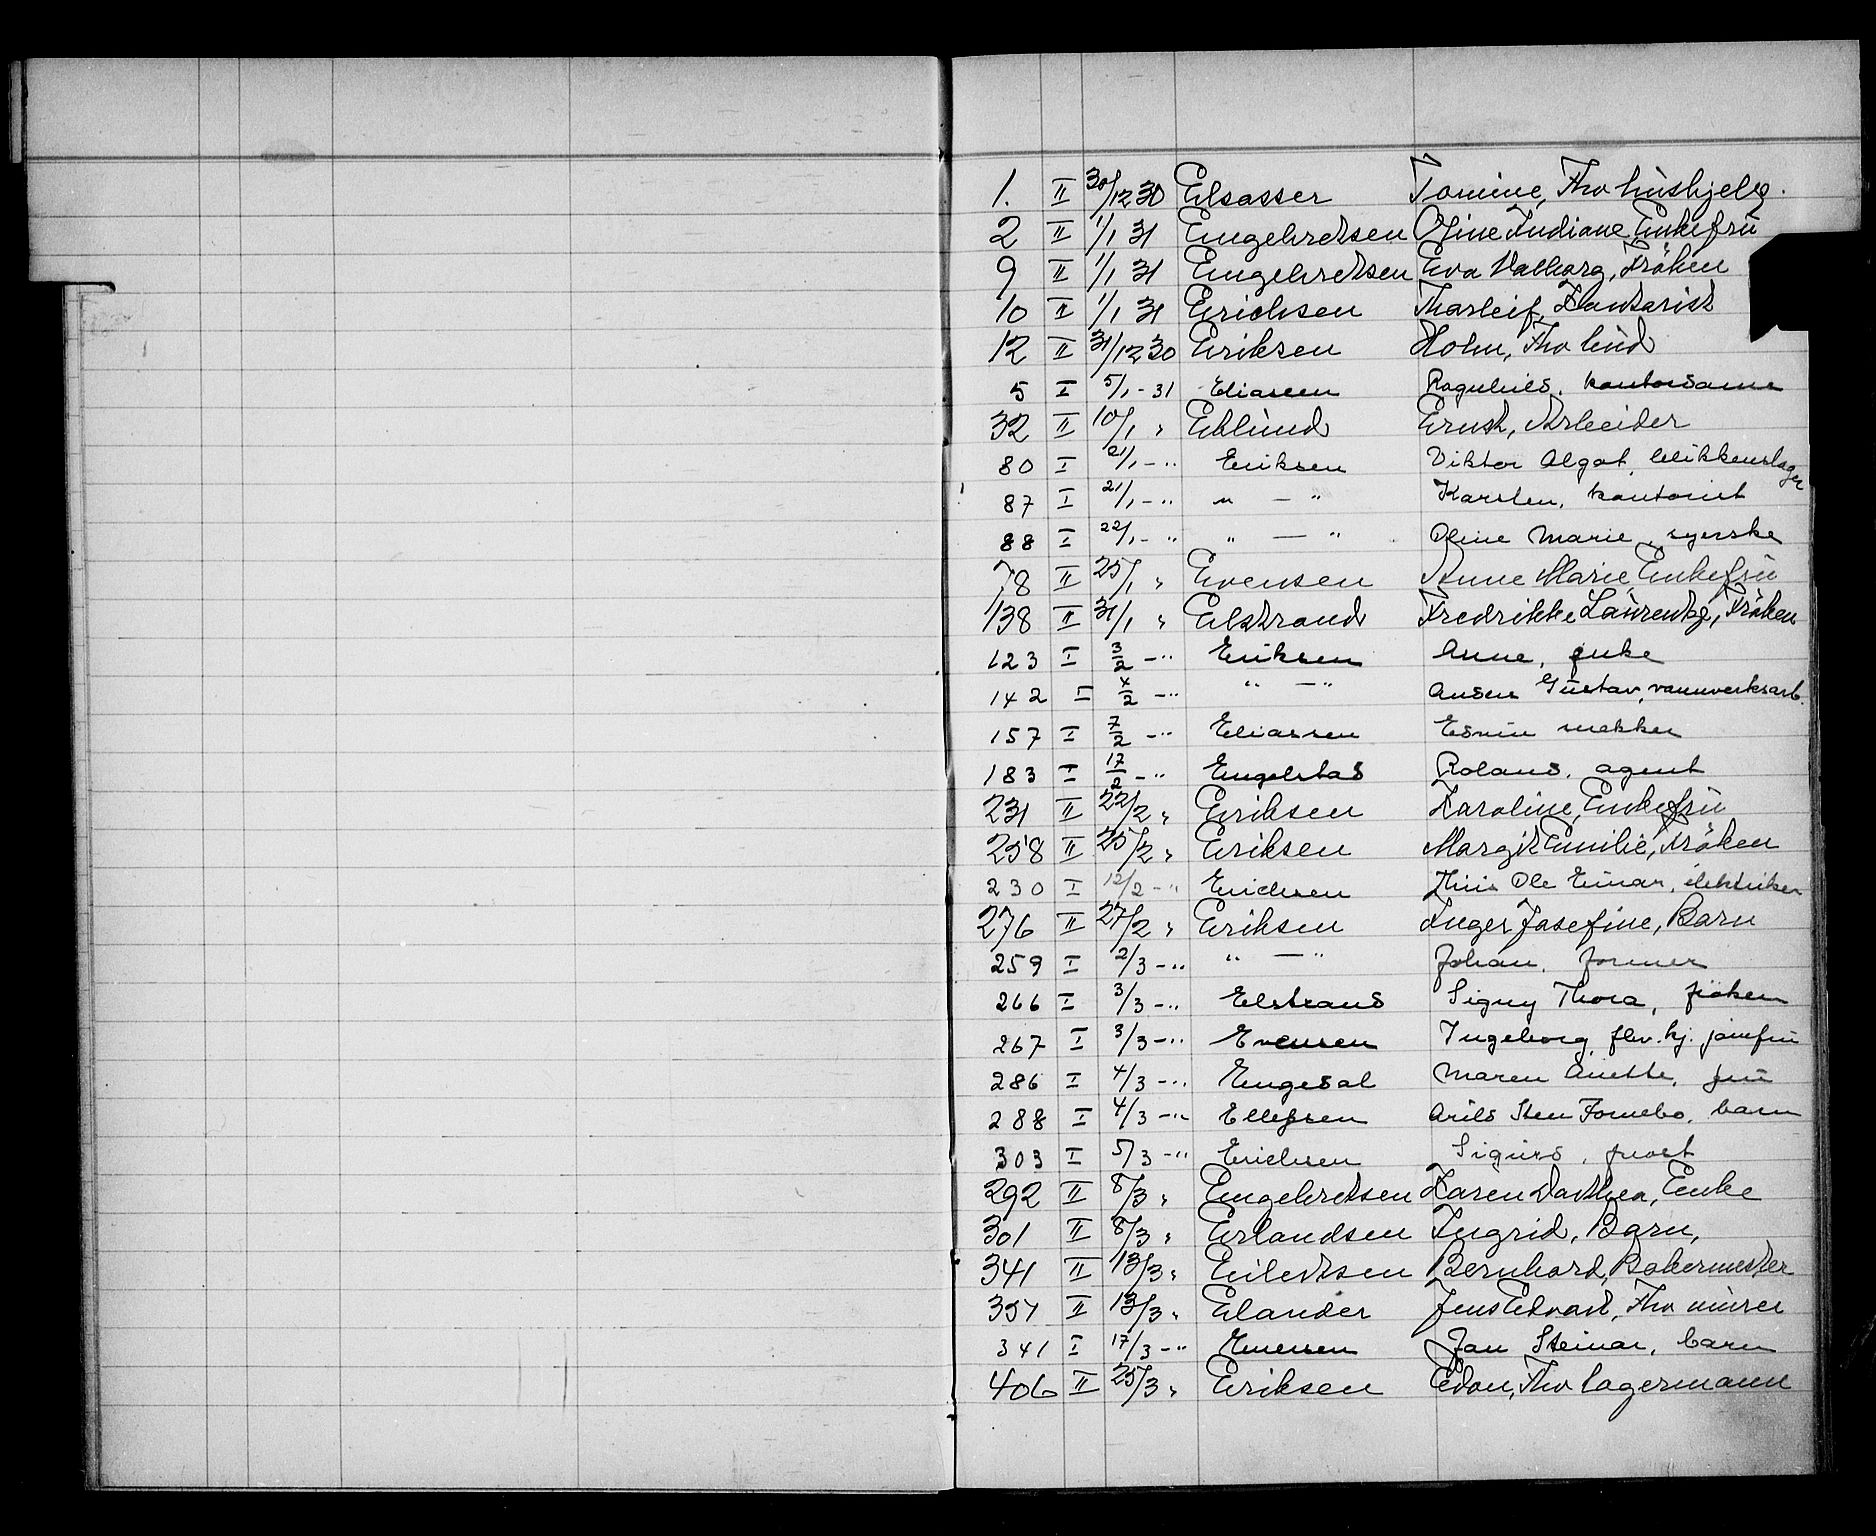 1. II 30/12 30 Elsasser Tomine, Fhv hushjelp.
2 II 1/1 31 Engebretsen Oline Indiane Enkefru
9 II 1/1 31 Engebretsen Eva Valborg, Frøken
10 II 1/1 31 Erichsen Thorleif, Kontorist
12 II 31/12 30 Eriksen Holm, Fhv
5 I 5/1 - 31 Eliassen Ragnhild, kontordame
32 II 10/1 " Eklund Ernst, Arbeider
80 I 21/1 - " Eriksen Viktor Algot, blikkenslager
87 I 21/1 - " " - " Karsten, kontorist
88 I 22/1 - " " - " Oline Marie, syerske
78 II 25/1 " Evensen Anne Marie Enkefru
138 II 31/1 " Elstrand Fredrikke Laurentze, Frøken
123 I 3/2 - " Eriksen Anne, enke
142 I 4/2 - " " - " Gustav, vannverksarb.
157 I 7/2 - " Eliassen Edvin snekker
183 I 17/2 - " Engelstad Roland, agent
231 II 22/2 " Eriksen Karoline, Enkefru
258 II 25/2 " Eriksen Margit Emilie, Frøken
230 I 12/2 - " Erichsen Ole Einar, elektriker
276 II 27/2 " Eriksen Inger Josefine, Barn
259 I 2/3 - " " - " Johan, former
266 I 3/3 - " Elstrand Signy Thora, frøken
267 I 3/3 - " Evensen Ingeborg, jomfru
286 I 4/3 - " Engedal Maren Anette, fru
288 I 4/3 - " Ellefsen Arild Sten Fornebo, barn
303 I 5/3 - " Erichsen Sigurd,
292 II 8/3 " Engebretsen Karen Dorthea, Enke
301 II 8/3 " Erlandsen Ingrid, Barn,
341 II 13/3 " Eilertsen Bernhard, Bakermester
351 II 13/3 " Elander Jens Edvard, Fhv murer
341 I 17/3 - " Evensen Jan Steinar, barn
406 II 25/3 " Eriksen Edon, Fhv lagermann